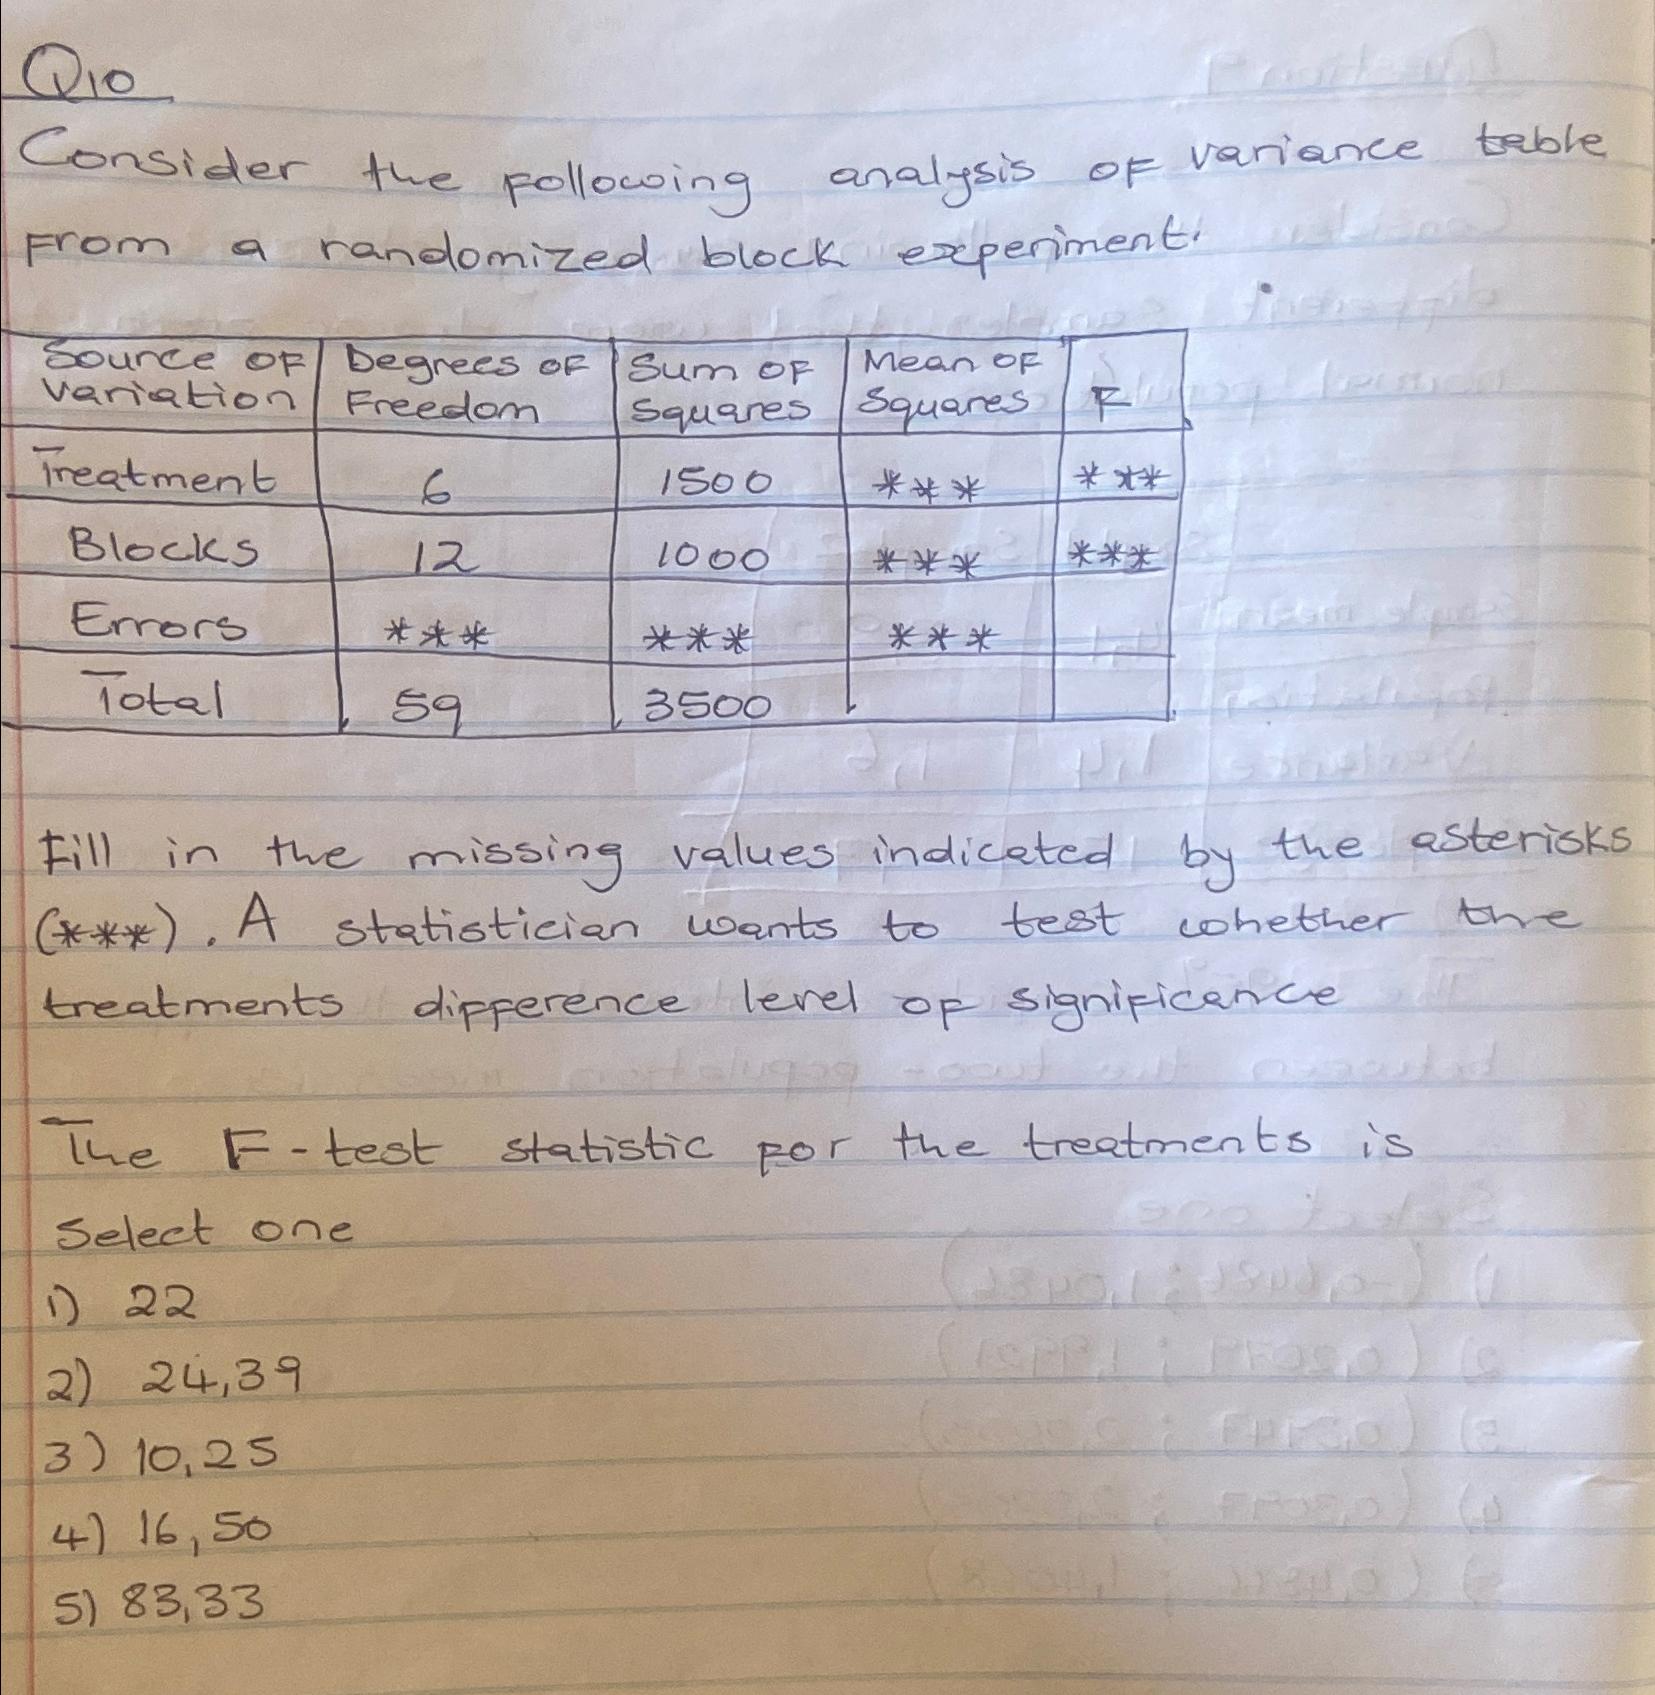 Q10
Consider the following analysis of variance table
from a randomized block experiment.
Source of Variation | Degrees of Freedom | Sum of Squares | Mean of Squares | F
Treatment | 6 | 1500 | *** | ***
Blocks | 12 | 1000 | *** | ***
Errors | *** | *** | ***
Total | 59 | 3500
Fill in the missing values indicated by the asterisks
(***). A statistician wants to test whether the
treatments difference level of significance
The F-test statistic for the treatments is
Select one
1) 22
2) 24,39
3) 10,25
4) 16,50
5) 83,33